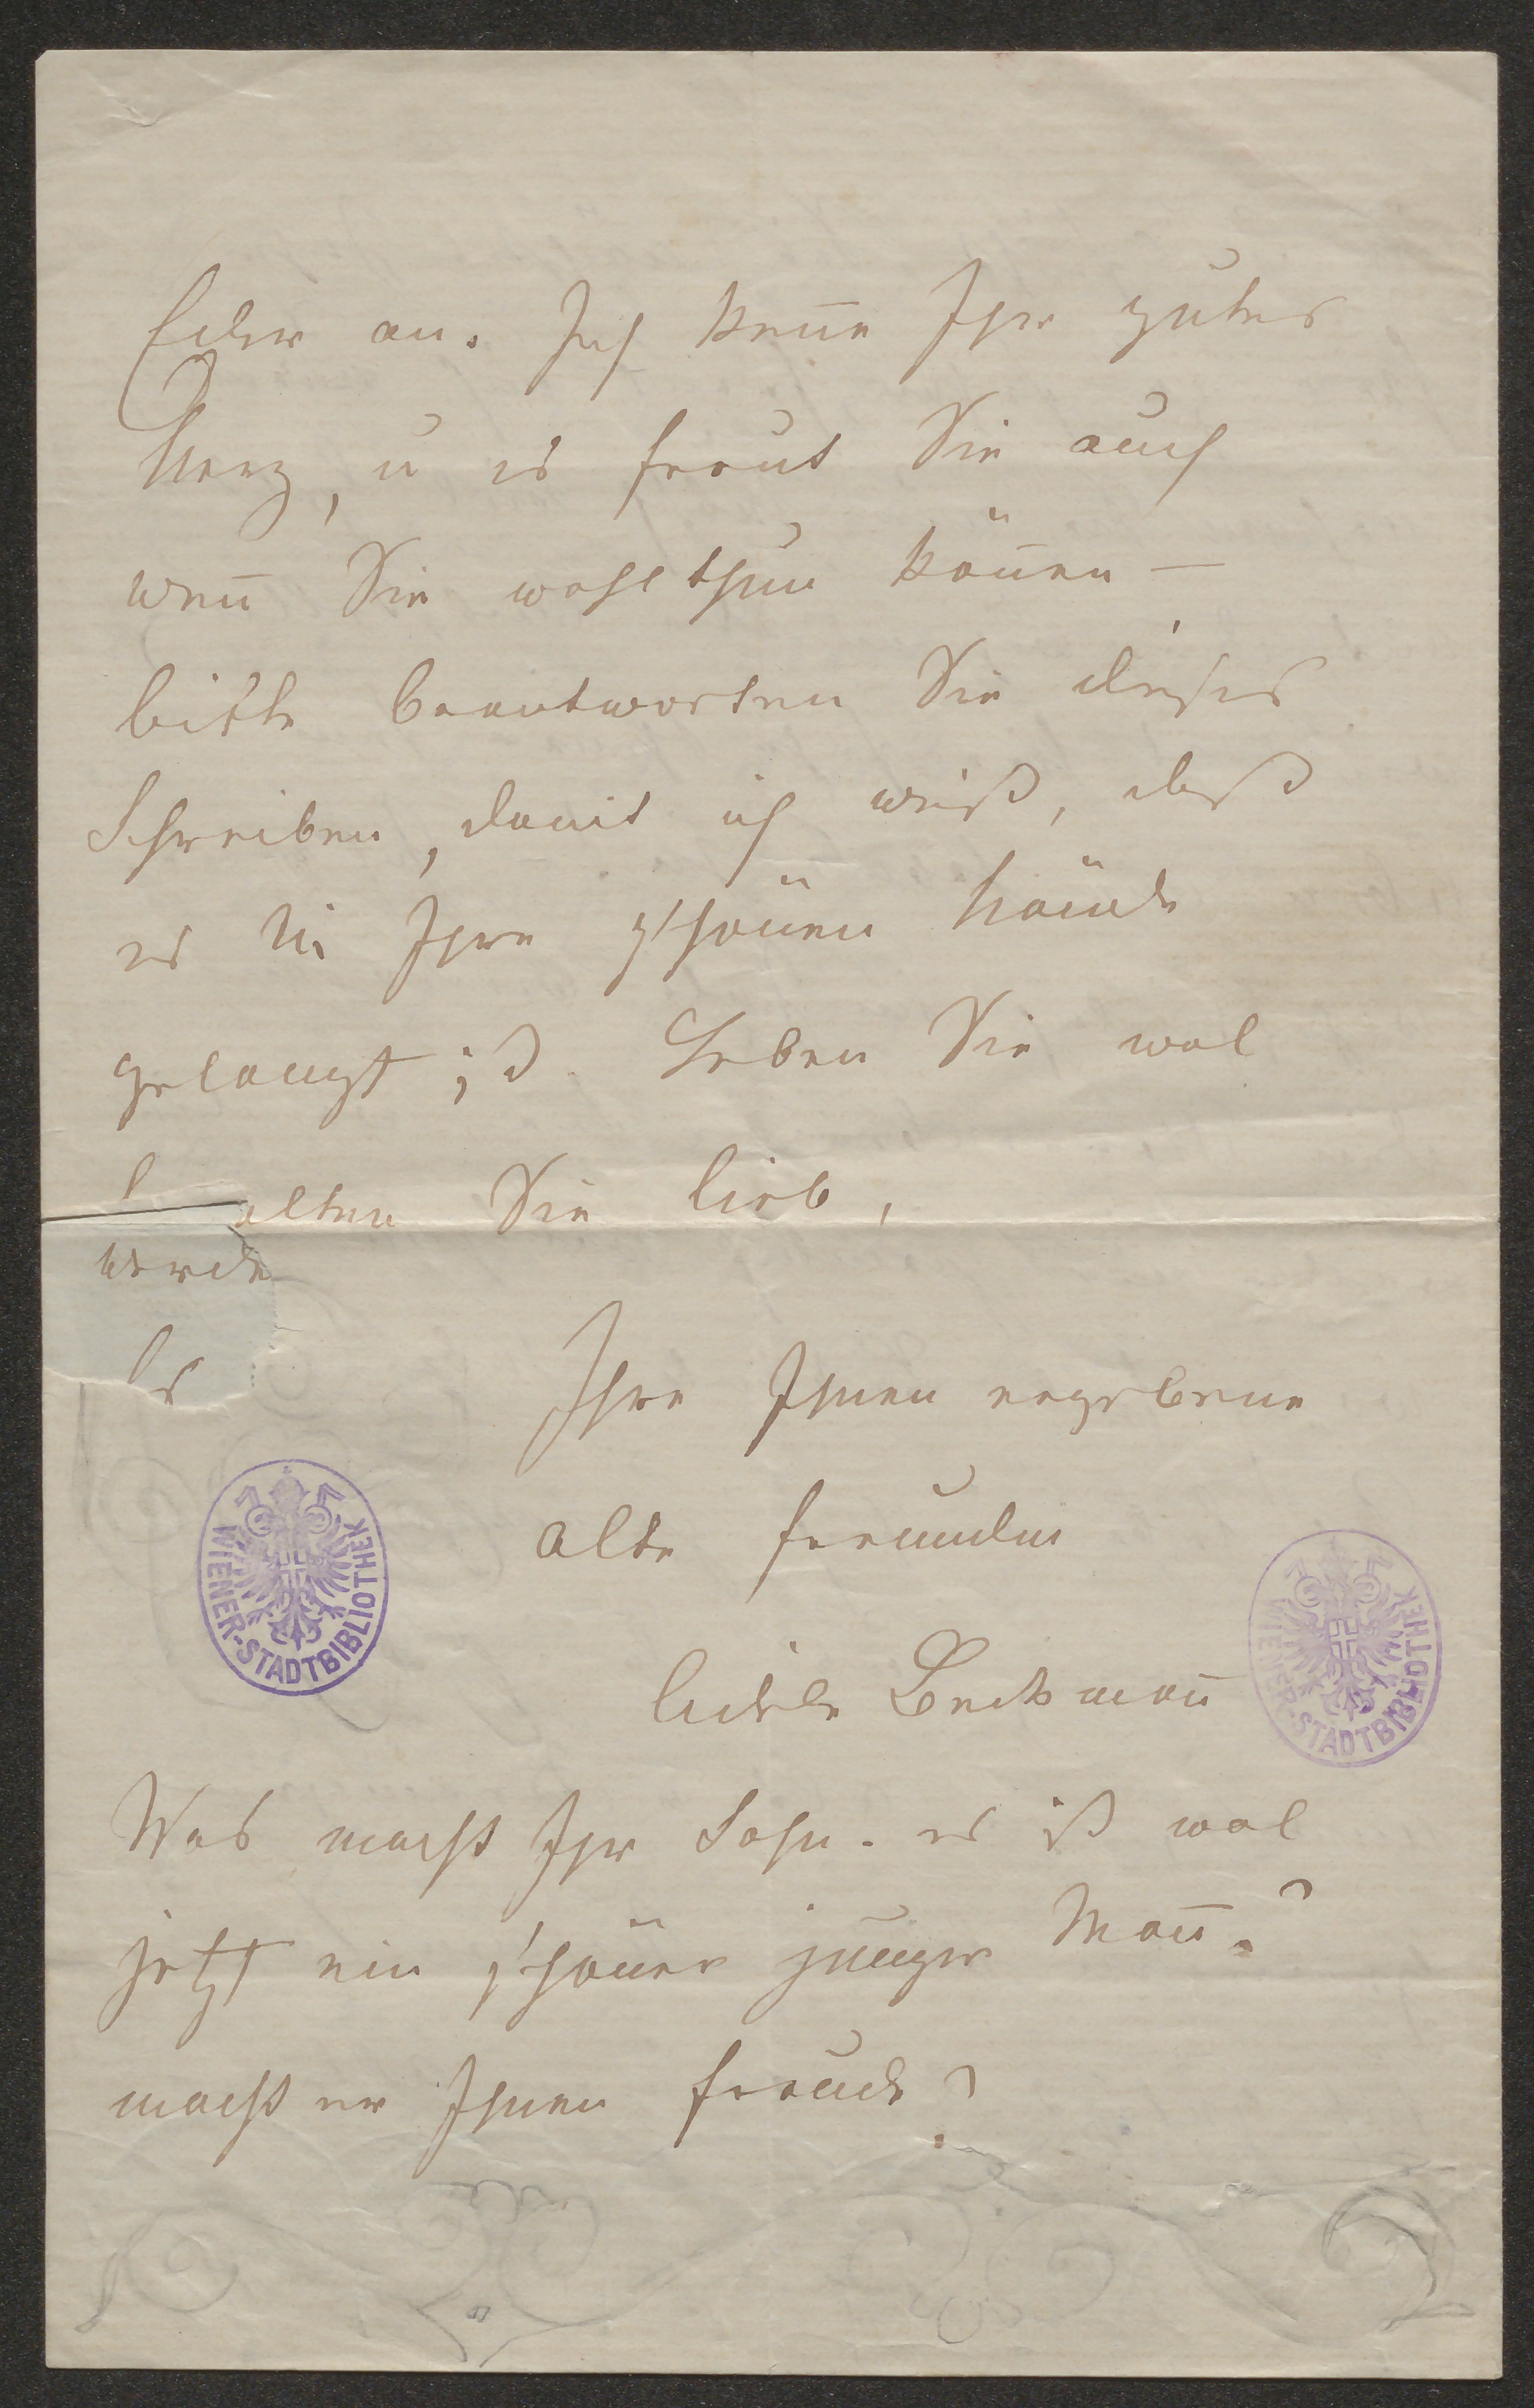 Eder an. Ich keñe Ihr gutes
Herz, u es freut Sie auch
weñ Sie wohlthun köñen –
bitte beantworten Sie dieses
Schreiben, damit ich weiß, daß
es in Ihre schönen Hände
gelangt ist. Leben Sie wol
alten Sie lieb,
werde
Ihre Ihnen ergebene
alte Freundin
Adele Beckmañ
WIENER-STADTBIBLIOTHEK
WIENER-STADTBIBLIOTHEK
Was macht Ihr Sohn. er ist wol
jetzt ein schöner junger Mañ?
macht er Ihnen Freude?